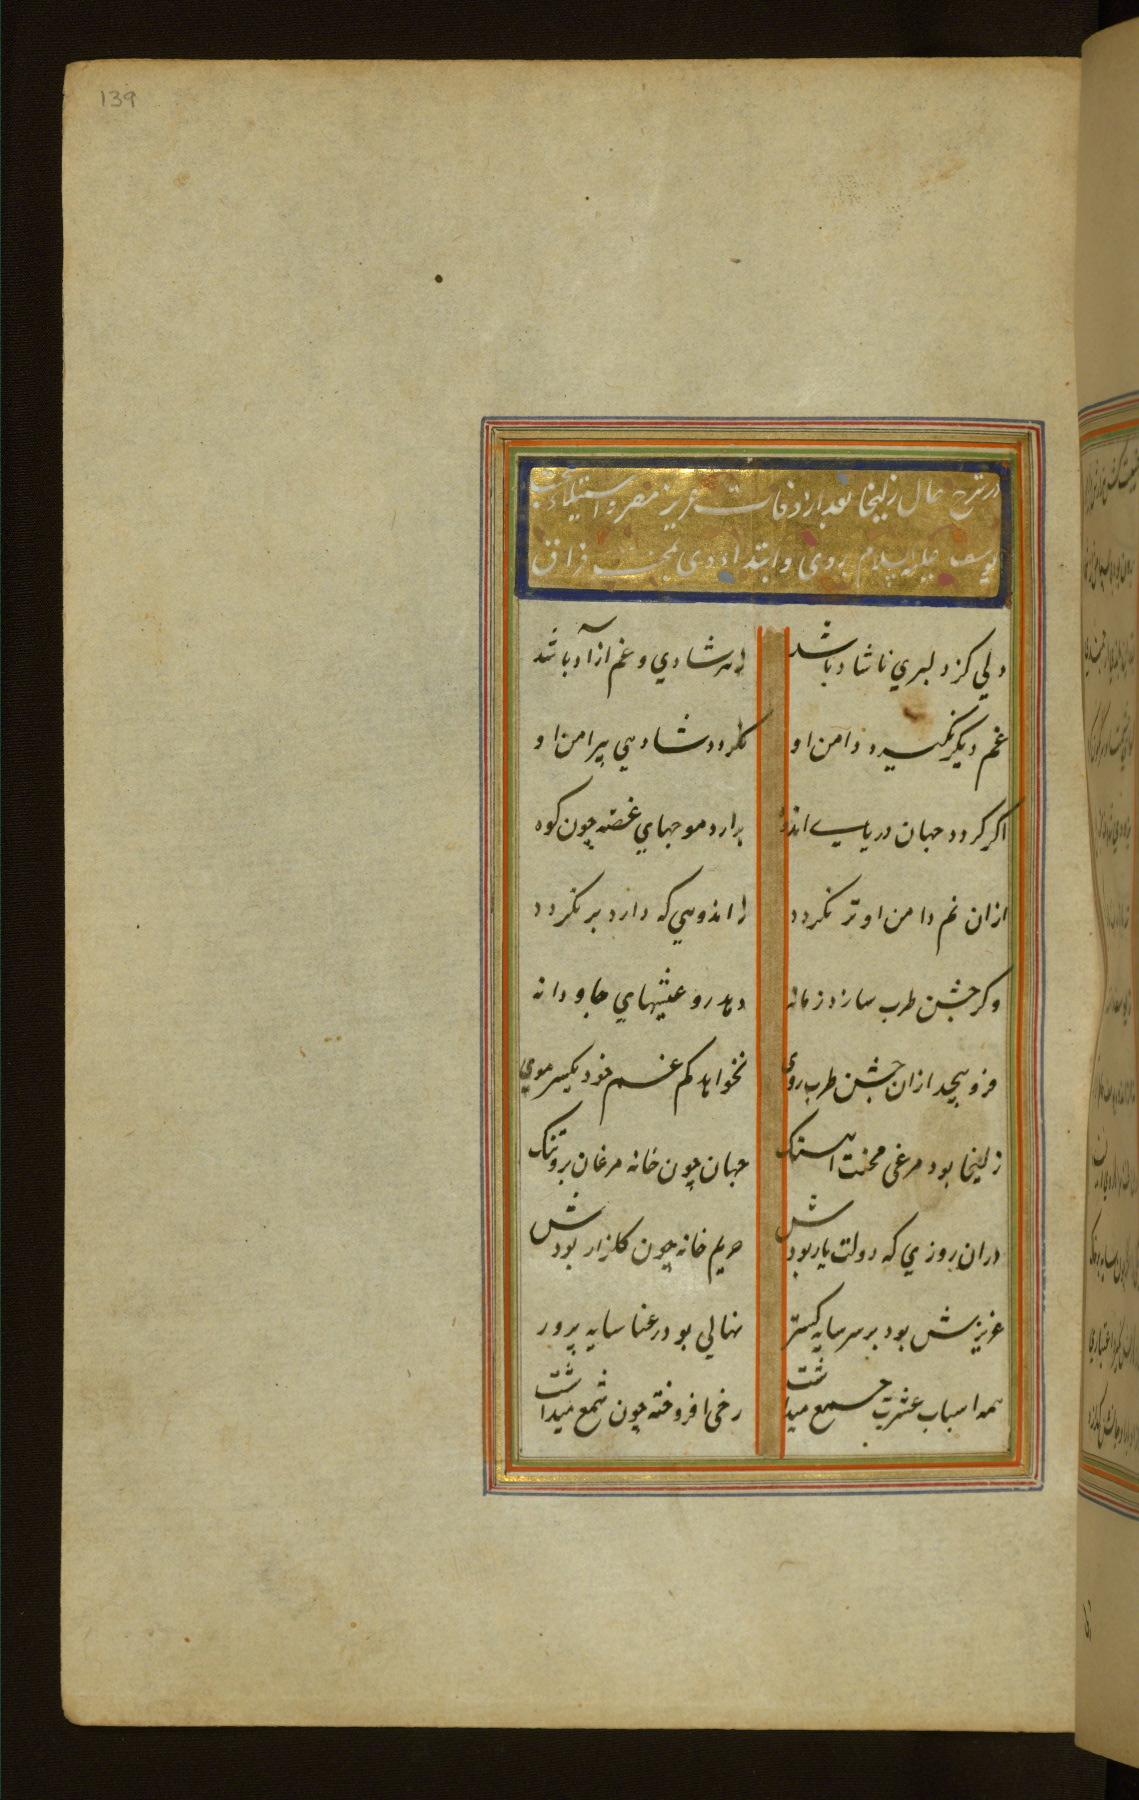 139
در شرح حال زلیخا بعد از وفات عزیز مصر و استیلاء محبت
یوسف علیه السلام بروی و ابتداء وی بمحنت فراق
دلی کز دلبری ناشاد باشد ز هر شادی و غم آزاد باشد
غم دیکر نکیرد دامن او نکردد شادیی پیرامن او
اکر کردد جهان دریای اندوه برارد موجهای غصه چون کوه
ازان نم دامن او تر نکردد ز اندوهی که دارد بر نکردد
وکر جشن طرب سازد زمانه دهد رو عیشهای جاودانه
فرو پیچد ازان جشن طرب روی نخواهد کم غم خود یکسر موی
زلیخا بود مرغی محنت آهنک جهان چون خانه مرغان برو تنک
دران روزی که دولت یار بودش حریم خانه چون کلزار بودش
عزیزش بود بر سر سایه کستر نهالی بود رعنا سایه پرور
همه اسباب عشرت جمع میداشت رخی افروخته چون شمع میداشت